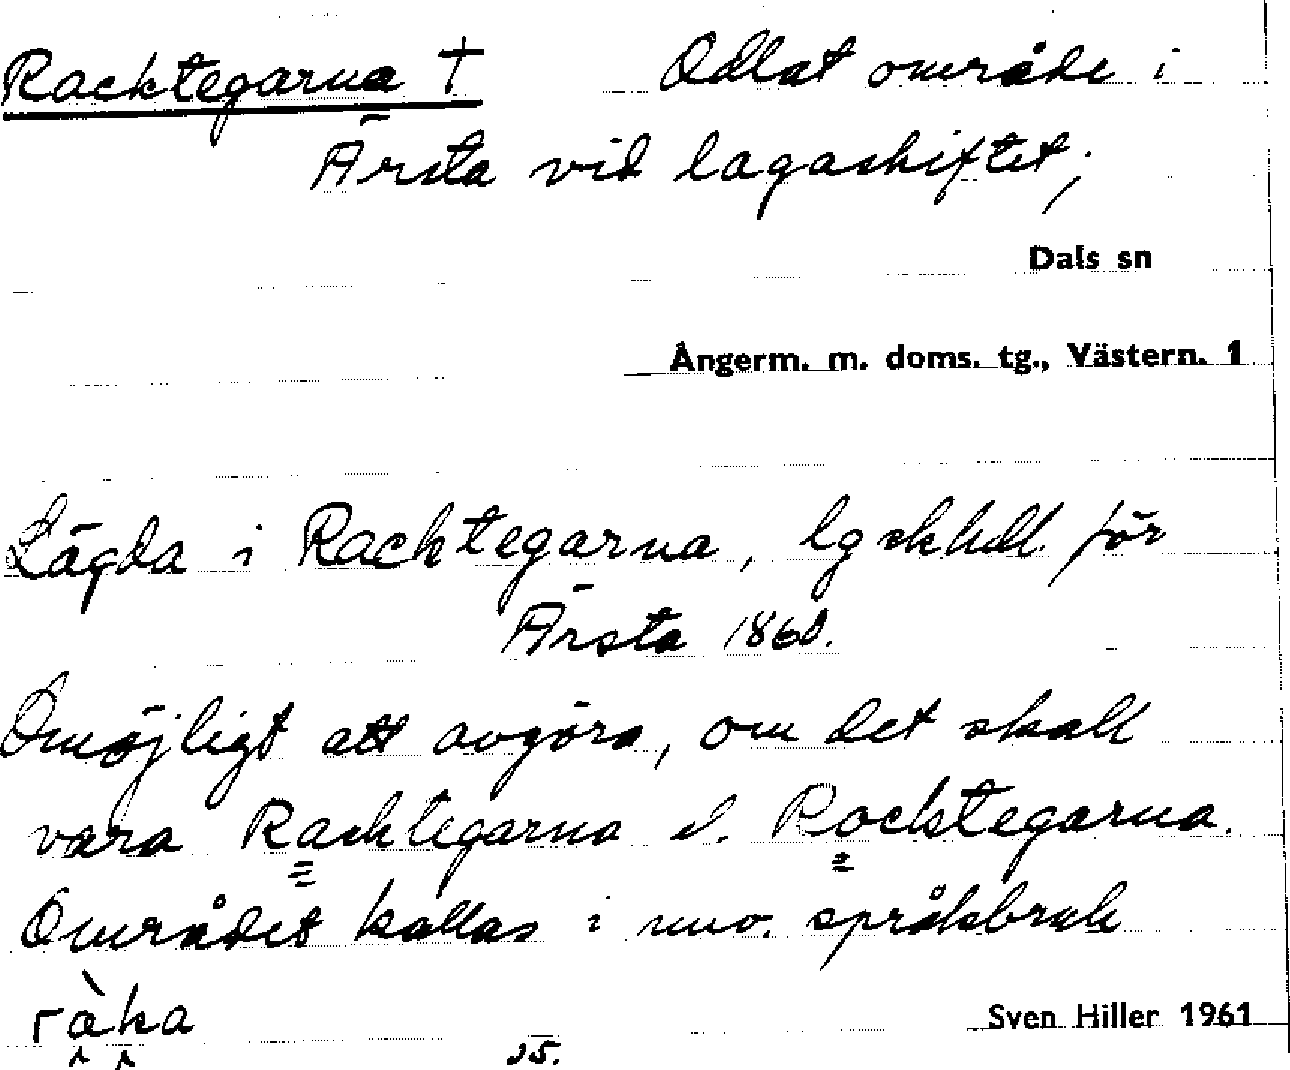 Racktegarna † Odlat område i
Ärsta vid lagaskiftet;
Dals sn
Ångerm. m. doms. tg., Västern. 1
Lägda i Racktegarna, lgskhdl. för
Ärsta 1860.
Omöjligt att avgöra, om det skall
vara Racktegarna el. Rocktegarna.
Området kallas i nuv. språkbruk
ràka
Sven Hiller 1961